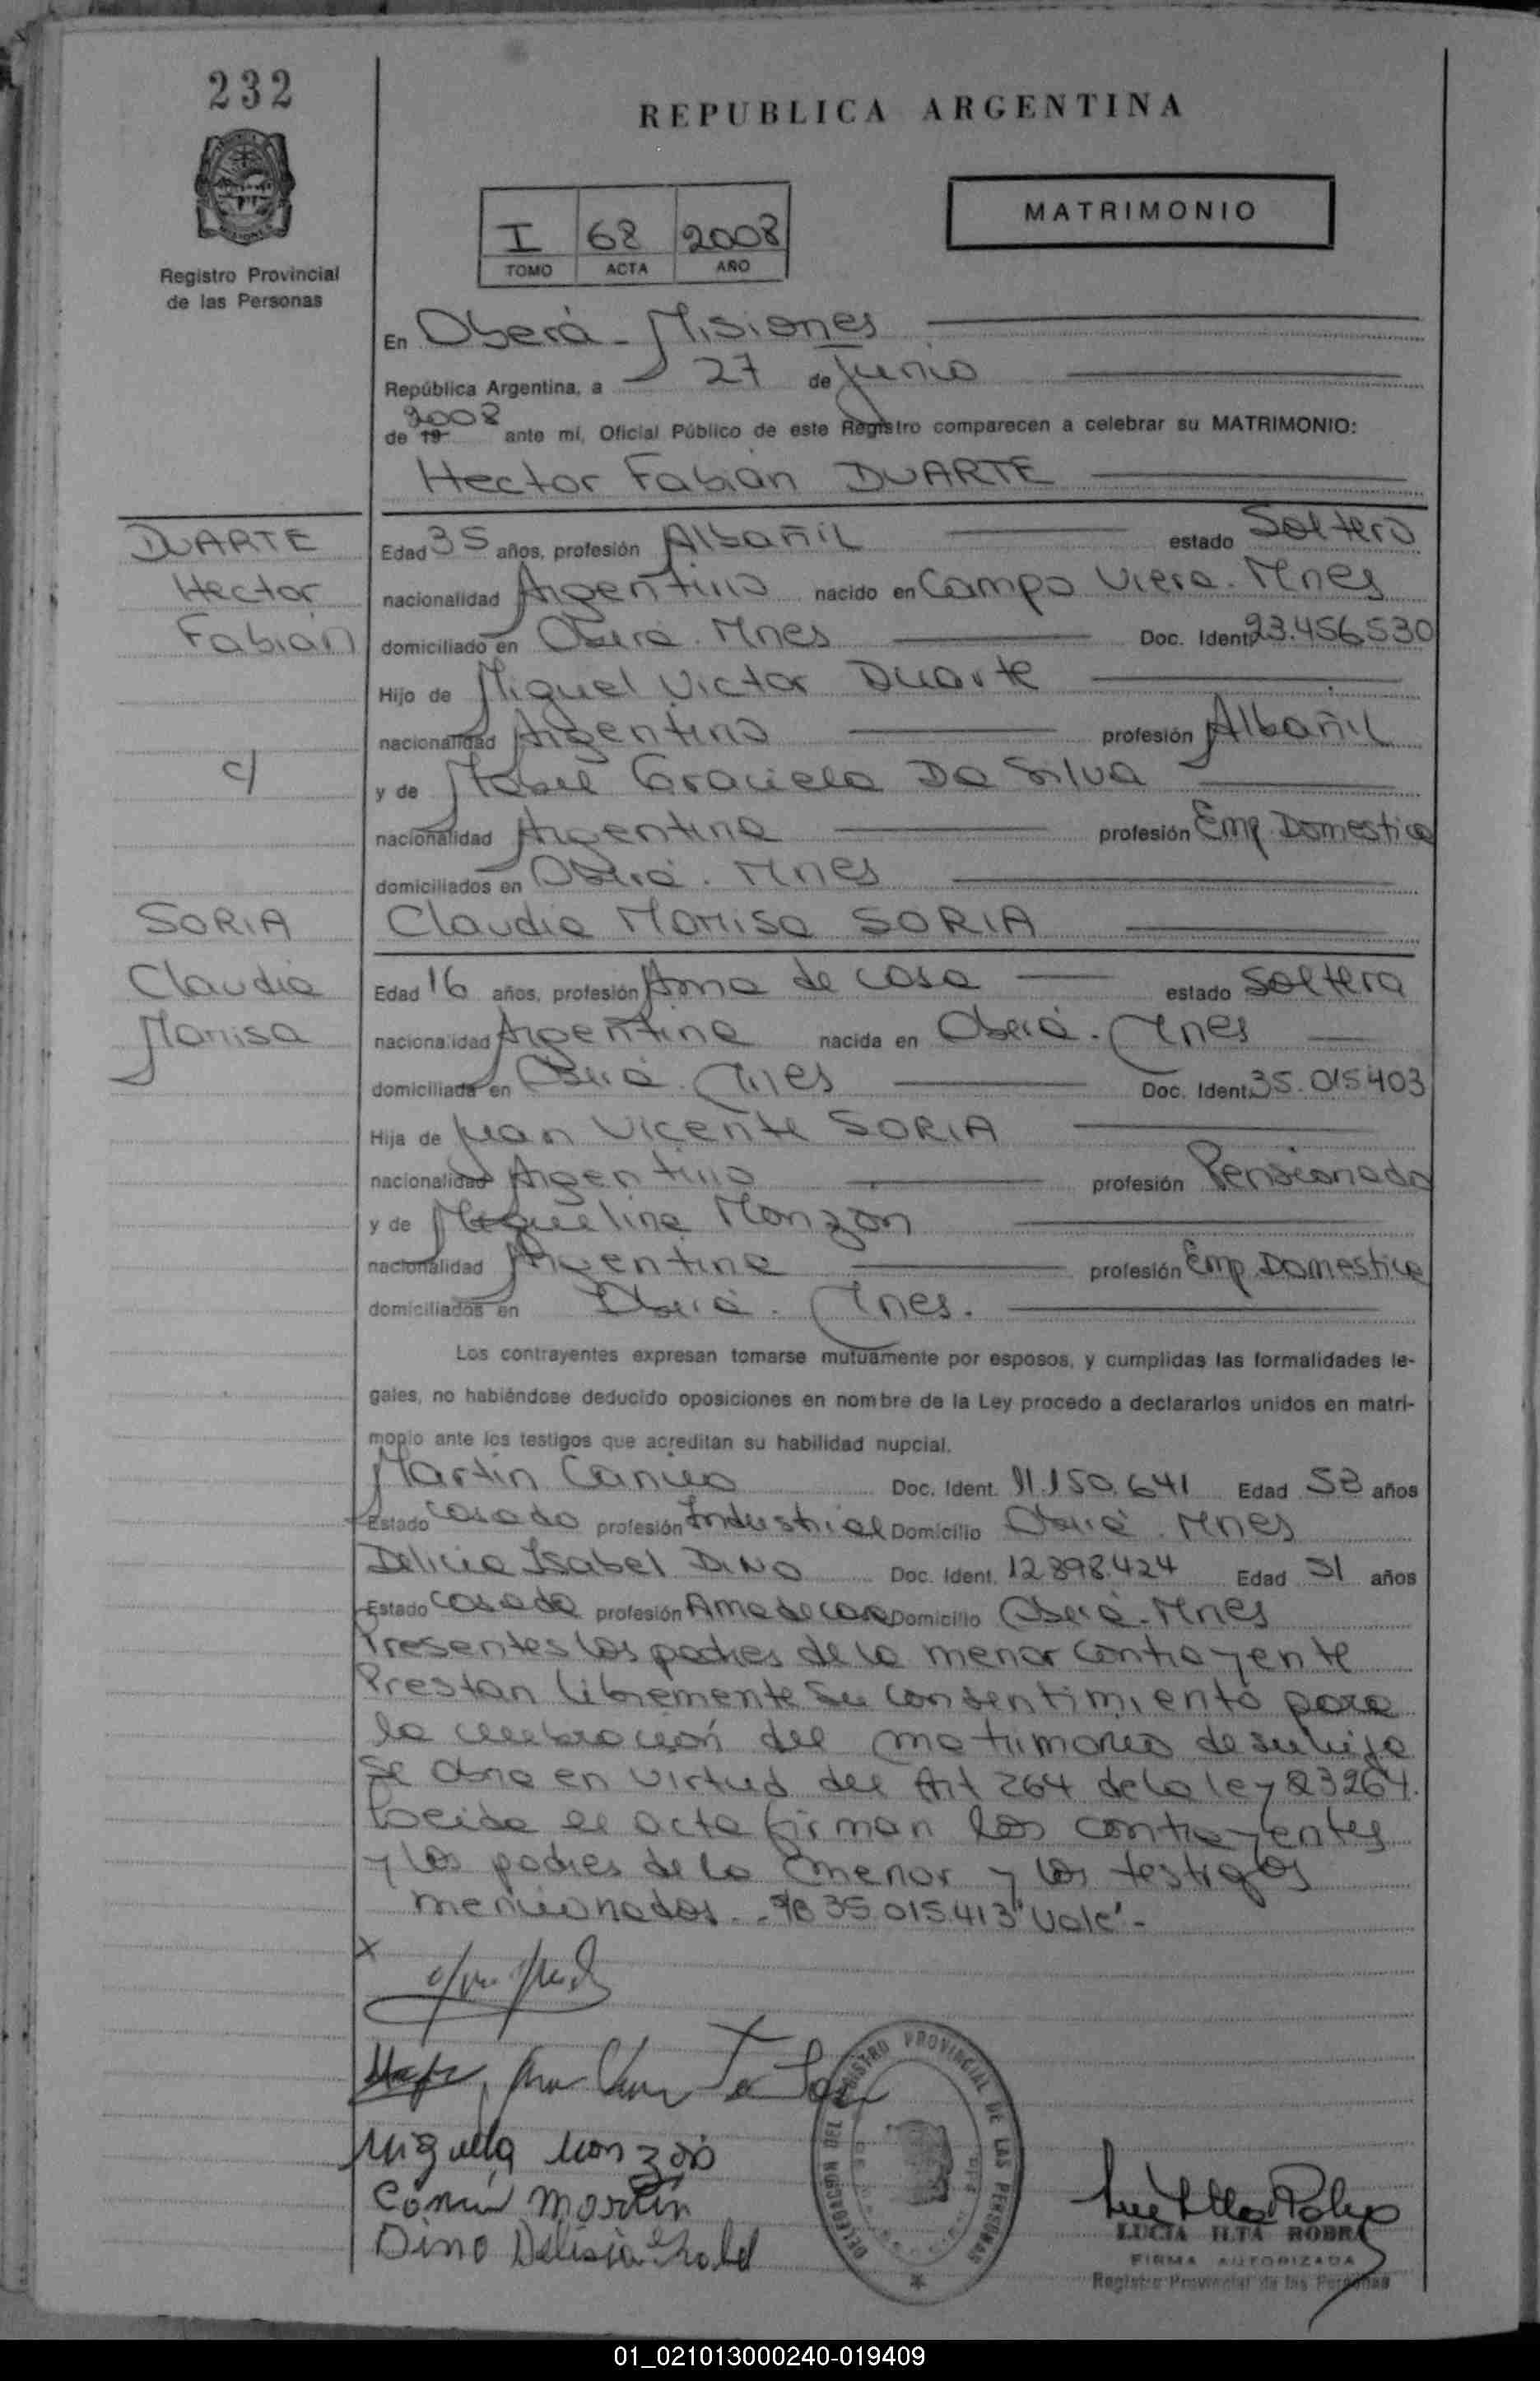 232
REPUBLICA ARGENTINA
MATRIMONIO
I 68 2008
TOMO ACTA AÑO
Registro Provincial
de las Personas
En Oberá - Misiones
República Argentina, a 27 de Junio
de 19 2008 ante mí, Oficial Público de este Registro comparecen a celebrar su MATRIMONIO:
Hector Fabián DUARTE
DUARTE
Hector
Fabián
c/
SORIA
Claudia
Marisa
Edad 35 años, profesión Albañil estado Soltero
nacionalidad Argentino nacido en Campo Viera. Mnes
domiciliado en Oberá. Mnes Doc. Ident. 23.456.530
Hijo de Miguel Victor Duarte
nacionalidad Argentino profesión Albañil
y de Mabel Graciela Da Silva
nacionalidad Argentina profesión Emp. Domestica
domiciliados en Oberá. Mnes
Claudia Marisa SORIA
Edad 16 años, profesión Ama de casa estado Soltera
nacionalidad Argentina nacida en Oberá. Mnes
domiciliada en Oberá. Mnes Doc. Ident. 35.015.403
Hija de Juan Vicente SORIA
nacionalidad Argentino profesión Pensionado
y de Miguelina Monzon
nacionalidad Argentina profesión Emp. Domestica
domiciliados en Oberá. Mnes.
Los contrayentes expresan tomarse mutuamente por esposos, y cumplidas las formalidades le-
gales, no habiéndose deducido oposiciones en nombre de la Ley procedo a declararlos unidos en matri-
monio ante los testigos que acreditan su habilidad nupcial.
Martin Doc. Ident. 11.150.641 Edad 53 años
Estado casado profesión Industrial Domicilio Oberá. Mnes
Delicia Isabel DINO Doc. Ident. 12.898.424 Edad 51 años
Estado casada profesión Ama de casa Domicilio Oberá. Mnes
Presentes los padres de la menor contrayente
Prestan libremente su consentimiento para
la celebración del matrimonio de su hija
Se obra en virtud del Art 264 de la ley 23264.
Leida el acta firman los contrayentes
y los padres de la menor y los testigos
mencionados. - 35.015.413 "Vale" -
X
Miguela Monzon
Martin
Dino Delisia
DELEGACION DEL REGISTRO PROVINCIAL DE LAS PERSONAS
LUCIA ILTA ROBRA
FIRMA AUTORIZADA
Registro Provincial de las Personas
01_021013000240-019409